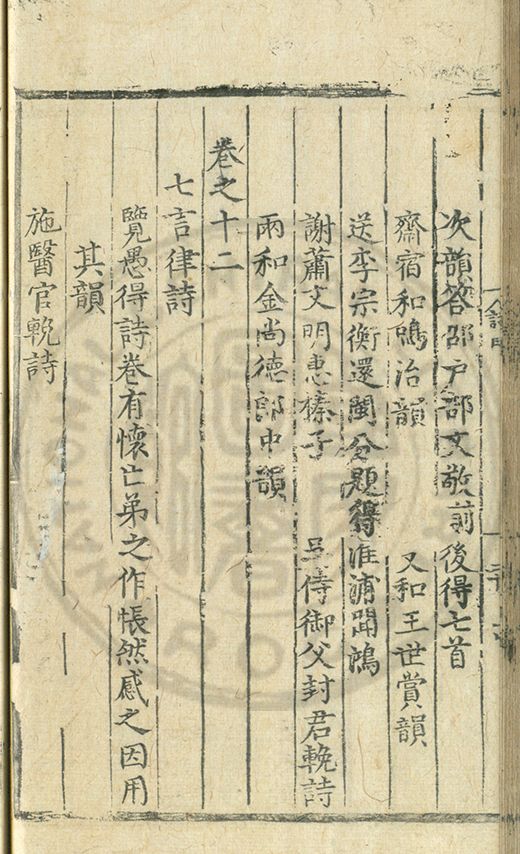 次韻答邵户部文敬前後得七首
齋宿和鳴治韻 又和王世賞韻
送李宗衡還閩分題得淮浦聞鴻
謝蕭文明惠榛子 吴侍御父封君輓詩
雨和金尚德郎中韻
卷之十二
七言律詩
覽愚得詩卷有懷亡弟之作悵然感之因用
其韻
施醫官輓詩